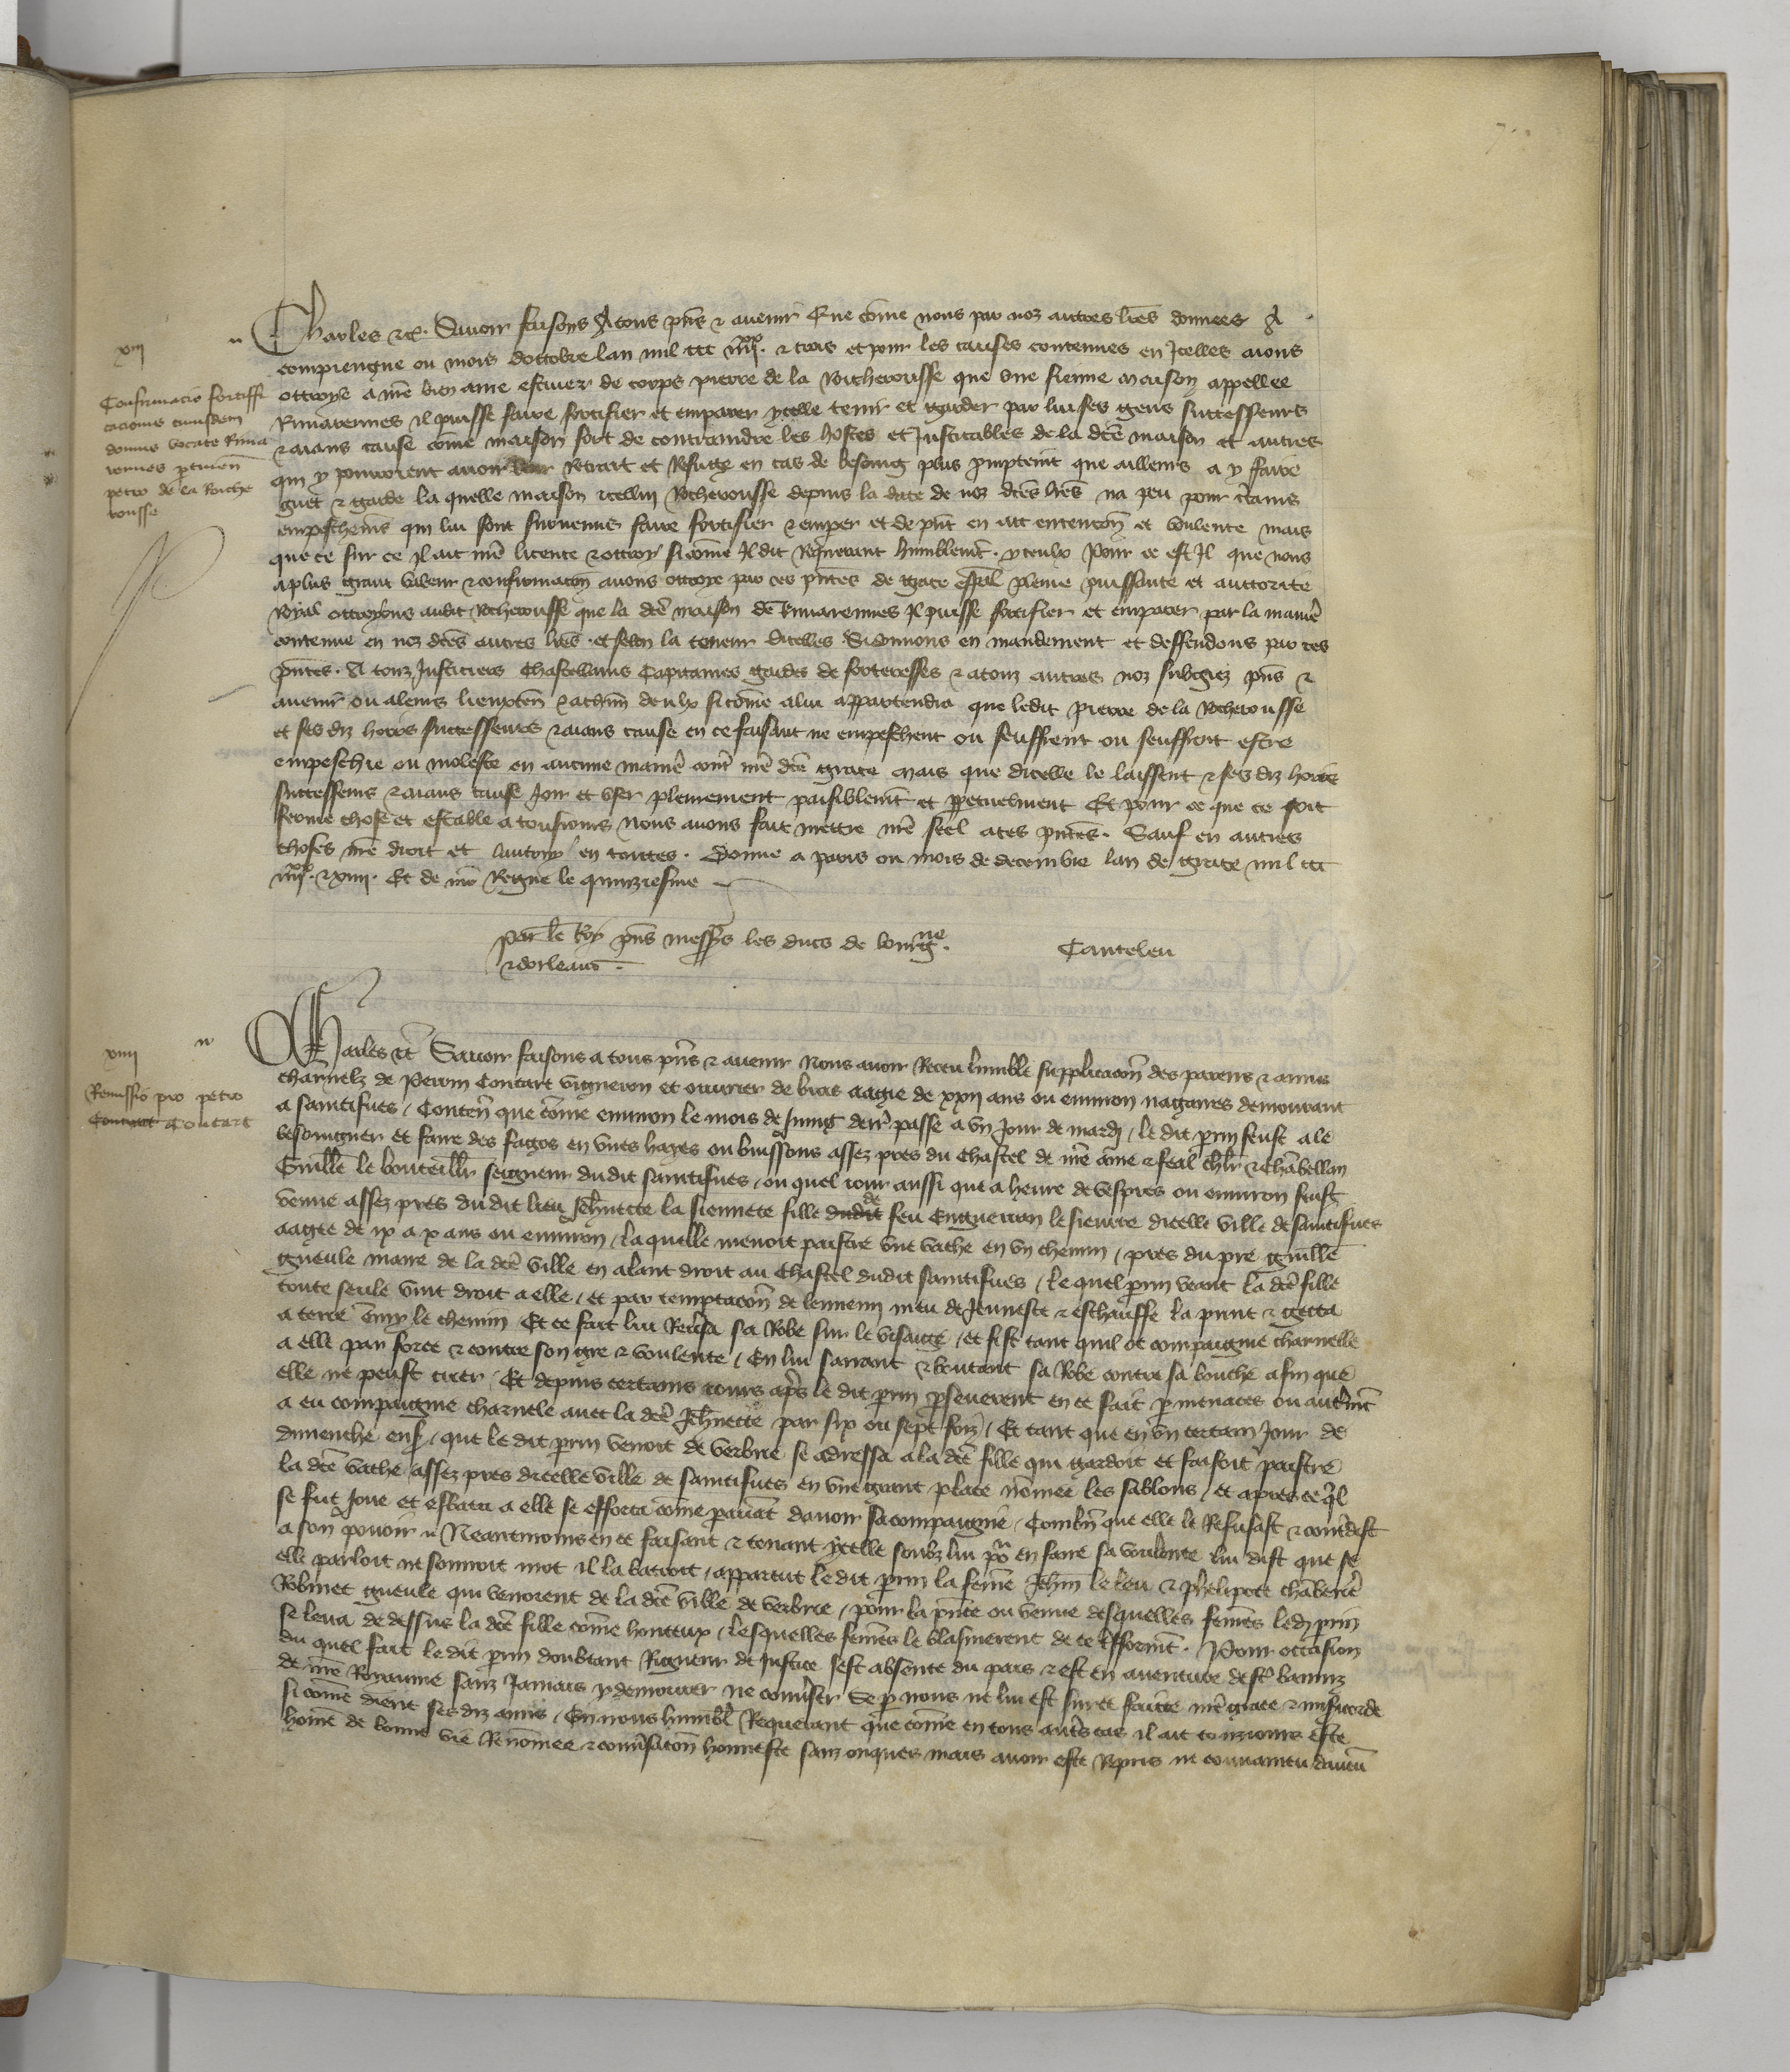 xiij
Confirmacio fortiffi
cacionis cuiusdem
domus vocate Riua
rennes pertinen
petro de la Roche
rousse
Charles etc. Sauoir faisons A tous pns & auenir Que come nous par noz autres lres donnees A
compiengne ou mois doctobre lan mil ccc iiijxx. & trois et pour les causes contenues en Icelles aions
ottroye a nre bien ame escuier de corps pierre de la Rocherousse que vne sienne maison appellee
Riuarennes il puisse faire fortifier et emparer ycelle tenir et garder par lui ses gens successeurs
& aians cause come maison fort de contraindre les hostes et Justicables de la dce maison et autres
qui y pourroient auoir leur Retrait et Refuge en cas de besoing plus promptemt que ailleurs a y faire
guet & garde la quelle maison icellui Rocherousse depuis la date de noz dces lres na peu pour certains
empeschems qui lui sont suruenus faire fortifier & emper et de pnt en ait entencon et voulente mais
que ce sur ce Il ait nre licence & ottroy si come Il dit Requerant humblemt. yceulx Pour ce est Il que nous
a plus grant valeur & confirmacon auons ottroye par ces pntes de grace espal plaine puissance et auctorite
Royal ottroyons audit Rocherousse que la dce maison de Riuarennes Il puisse fortifier et emparer par la maniere
contenue en noz dces autres lres. et selon la teneur dicelles Si donnons en mandement et deffendons par ces
pntes. A touz Justiciers Chastellains Capitaines gardes de forteresses & a touz autres noz subgiez pns &
auenir ou a leurs lieuxten & a chun deulx si come a lui appartendra que ledit pierre de la Rocherousse
et ses diz hoirs successeurs & aians cause en ce faisant ne empeschent ou seuffrent ou seuffrent estre
empeschie ou moleste en aucune maniere contre nre dce grace mais que dicelle le laissent & ses diz hoirs
successeurs & aians cause Joir et vser plainement paisiblemt et perpetuelment Et pour ce que ce soit
ferme chose et estable a tousiours nous auons fait mettre nre scel a ces pntes. Sauf en autres
choses nre droit et lautruy en toutes. Donne a paris ou mois de decembre lan de grace mil ccc
iiijxx. & xiiij. Et de nre Regne le quinziesme
Par le Roy pns messrs les ducs de bourgne.
& dorleans.
Canteleu
xiiij
Remissio pro petro
Coutart
Charles etc Sauoir faisons a tous pns & auenir Nous auoir Receu lumble supplicacon des parens & amis
charnelz de Perrin Coutart vigneron et ouurier de bras aagie de xxij ans ou enuiron nagaires demourant
a saintisues / Conten que come enuiron le mois de Juing derr passe a vn Jour de mardi / le dit prin feust ale
besoingner et faire des fagos en vnes hayes ou buissons assez pres du chastel de nre ame & feal chlr & chambellan
Guille le bouteillr seigneur dudit saintisues / ou quel iour aussi que a heure de vespres ou enuiron feust
venue assez pres du dit lieu Jehnette la siennete fille de feu Enguerran le sieurre dicelle ville de saintisues
aagee de ix a x ans ou enuiron / la quelle menoit paistre vne vache en vn chemin / pres du pre guille
gueule maire de la dce ville en alant droit au Chastel dudit saintisues / le quel prin veant la dce fille
toute seule vint droit a elle / et par temptacon de lennemi meu de Jeunesce & eschauffe la print & getta
a terre emy le chemin Et ce fait lui Reuersa sa Robe sur le visaige / et fist tant quil ot compaignie charnelle
a elle par force & contre son gre & voulente / En lui sarrant & boutant sa Robe contre sa bouche afin que
elle ne peust crier / Et depuis certains iours apres le dit prin perseuerent en ce fait p menaces ou autrmt
a eu compaignie charnele auec la dce Jehnette par six ou sept foiz / Et tant que en vn certain Jour de
dimenche ens / que le dit prin venoit de verbrie se adressa a la dce fille qui gardoit et faisoit paistre
la dce vache assez pres dicelle ville de saintisues en vne grant place nomee les sablons / et apres ce quil
se fut Joue et esbatu a elle se efforca come parauant dauoir sa compaignie / Combien que elle le Refusast & contredist
a son pouoir Neantmoins en ce faisant & tenant ycelle soubz lui pour en faire sa voulente lui dist que se
elle parloit ne sonnoit mot il la batroit / apparcut le dit prin la feme Jehin le leu & phelipote chaberet
Robinet gueule qui venoient de la dce ville de verbrie / pour la pnce ou venue desquelles femes ledi prin
se leua de dessus la dce fille come honteux / lesquelles femes le blasmerent de ce efformt. Pour occasion
du quel fait le dit prin doubtant Rigueur de Justice sest absente du pais & est en auenture destre banniz
de nre Royaume sanz Jamais y demourer ne conuerser Se p nous ne lui est sur ce faicte nre grace & misericorde
si come dient ses diz amis / En nous humblt Requerant que come en tous autres cas il ait touzjours este
home de bonne vie Renomee & conuersacon honneste sanz onques mais auoir este Repris ne conuaincu daucun